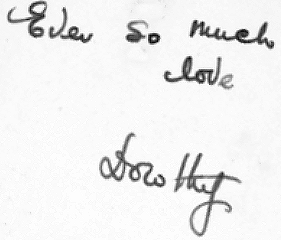 Ever so much
love
Dorothy